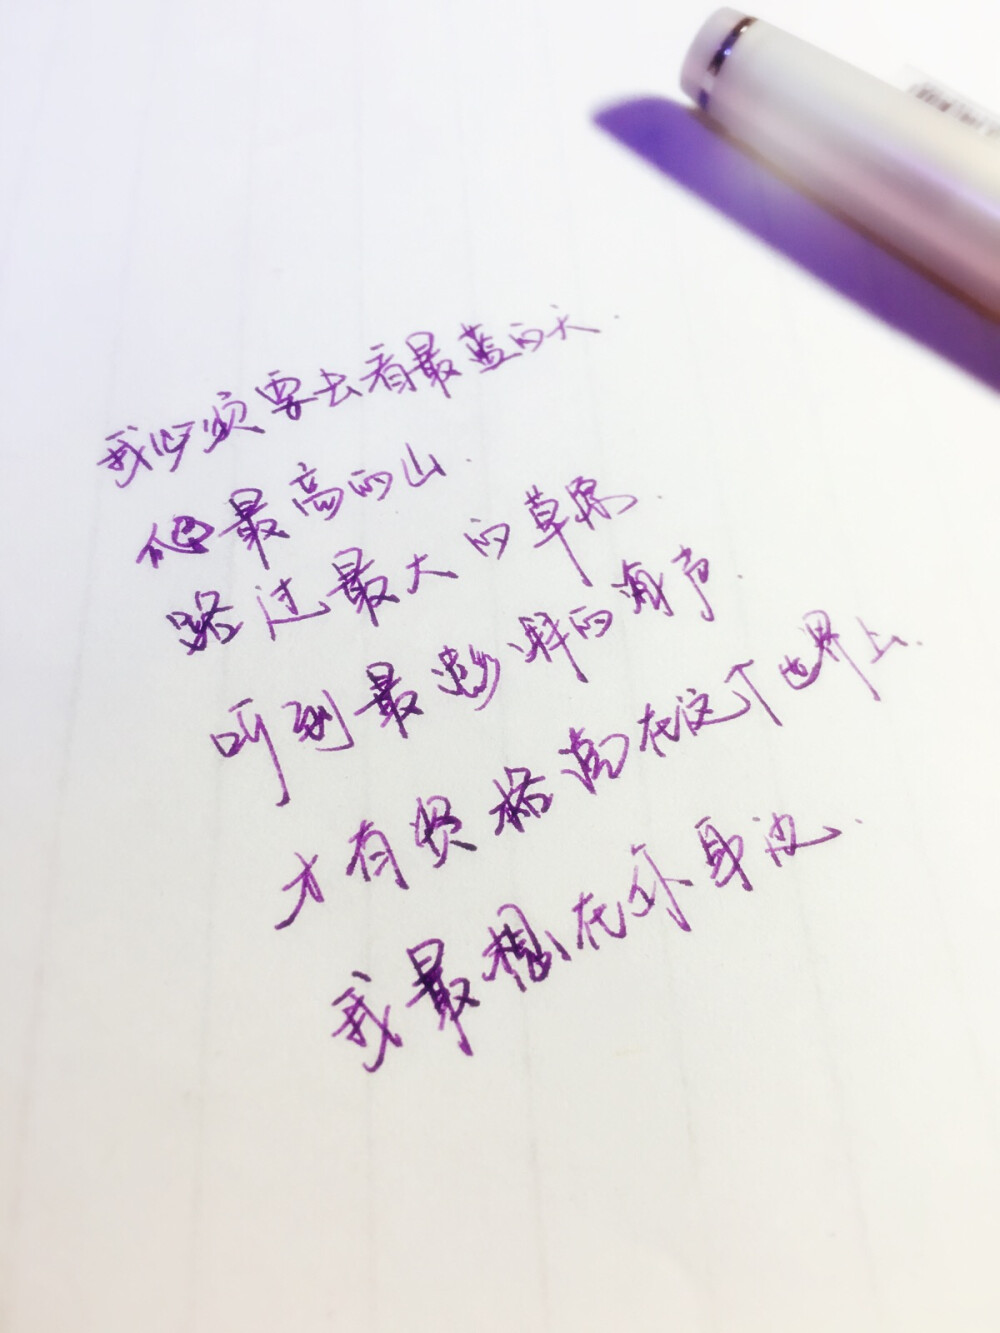 我必须要去看最蓝的天.
最高的山.
路过最大的草原.
听到最澎湃的海声.
才有资格活在这个世界上.
我最想在你身边.